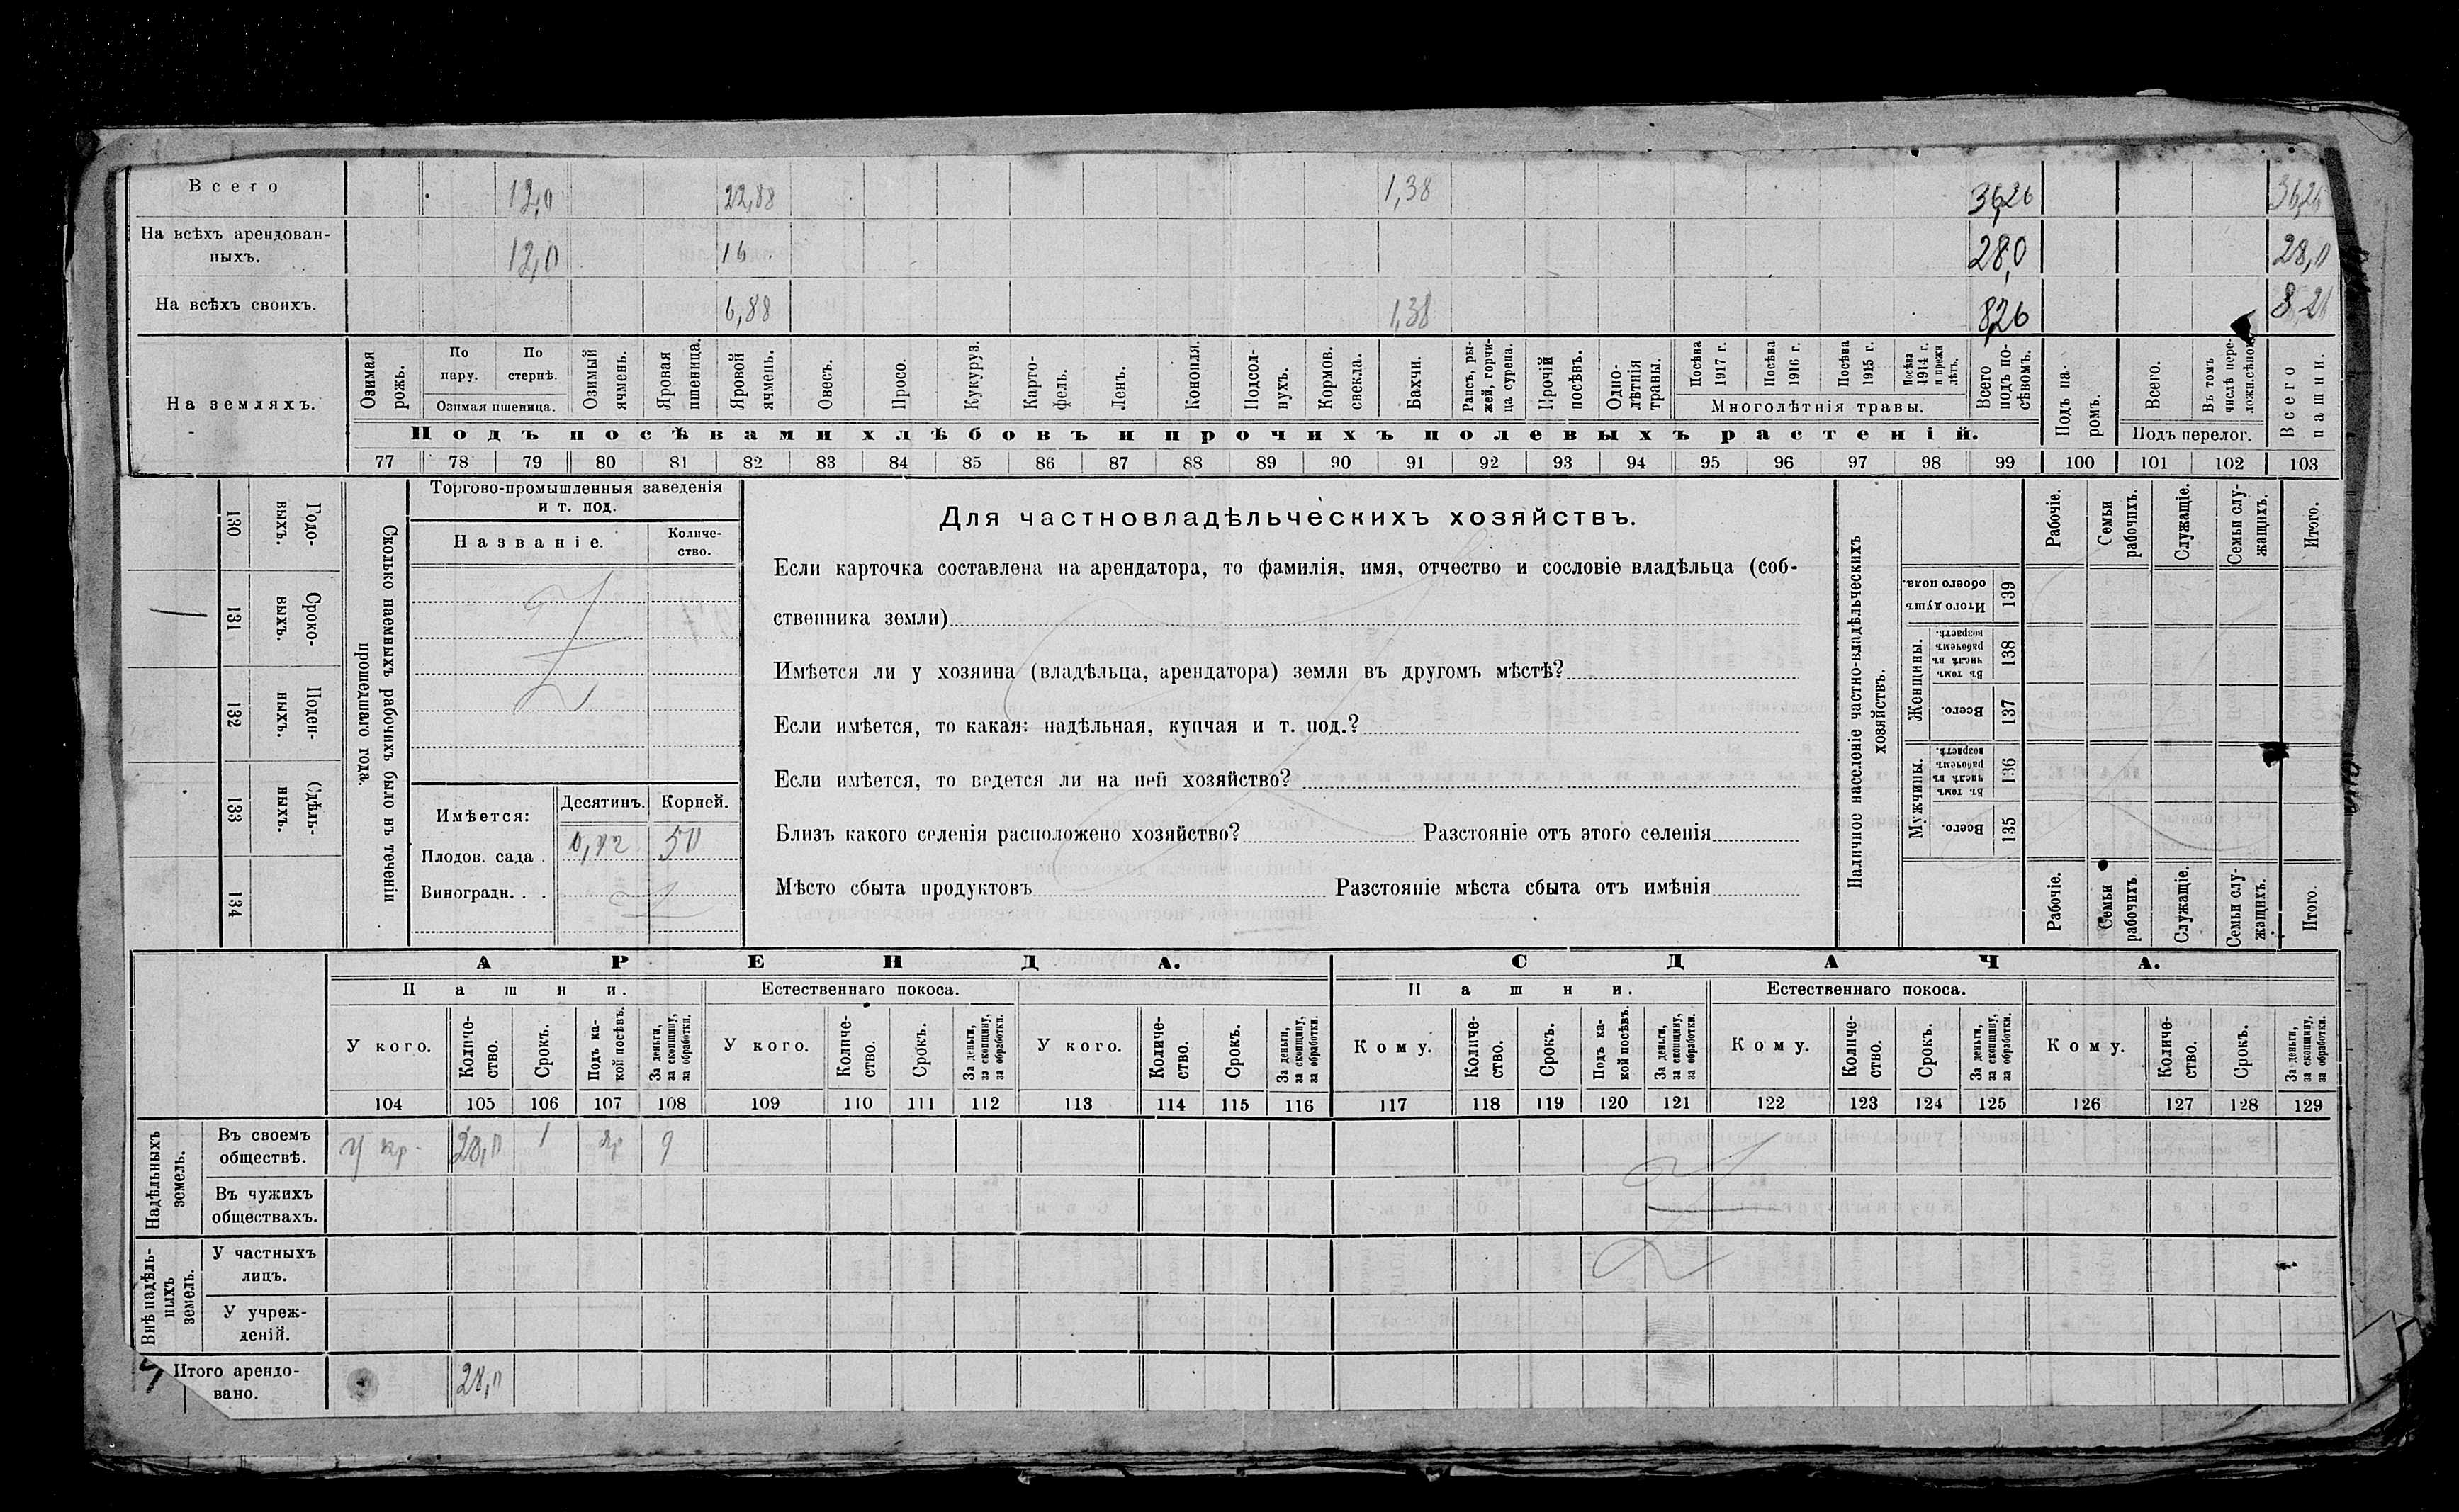 Всего 12,0 22,88 1,38 36,26 36,26
На всѣхъ арендован-
ныхъ. 12,0 16 28,0 28,0
На всѣхъ своихъ. 6,88 1,38 8,26 8 26
На земляхъ.
Озимая рожь.
По пару.
По стернѣ.
Озимая пшеница.
Озимый ячмень.
Яровая пшеница.
Яровой ячмень.
Овесъ.
Просо.
Кукуруз.
Карто-
фель.
Ленъ.
Конопля.
Подсол-
нухъ.
Кормов. свекла.
Бахчи.
Рапсъ, ры-
жей, горчи-
ца сурепа.
Прочій посѣвъ.
Одно-
лѣтнія травы.
Посѣва 1917 г.
Посѣва 1916 г.
Посѣва 1915 г.
Посѣва 1914 г. и прежн лѣтъ.
Многолѣтнія травы.
Всего подъ по-
сѣвомъ.
Подъ па-
ромъ.
Всего.
Въ томъ числѣ пере-
ложн.сѣнок
Подъ перелог.
Всего пашни.
Подъ посѣвами хлѣбовъ и прочихъ полевыхъ растеній.
77 78 79 80 81 82 83 84 85 86 87 88 89 90 91 92 93 94 95 96 97 98 99 100 101 102 103
Годо-
выхъ.
130
Сроко-
выхъ.
131
Поден-
ныхъ.
132
Сдѣль-
ныхъ.
133
134
Сколько наемныхъ рабочихъ было въ теченіи
прошедшаго года.
Торгово-промышленныя заведенія
и т. под.
Названіе.
Количе-
ство.
Имѣется:
Десятинъ.
Корней.
Плодов. сада . 50
Виноградн. . .
Для частновладѣльческихъ хозяйствъ.
Если карточка составлена на арендатора, то фамилія, имя, отчество и сословіе владѣльца (соб-
ственника земли)
Имѣется ли у хозяина (владѣльца, арендатора) земля въ другомъ мѣстѣ?
Если имѣется, то какая: надѣльная, купчая и т. под.?
Если имѣется, то ведется ли на ней хозяйство?
Близъ какого селенія расположено хозяйство? Разстояніе отъ этого селенія
Мѣсто сбыта продуктовъ Разстояніе мѣста сбыта отъ имѣнія
Наличное населеніе частно-владѣльческихъ
хозяйствъ.
Рабочіе.
Семьи рабочихъ.
Служащіе.
Семьи слу-
жащихъ.
Итого.
Итого душъ обоего пола.
139
Женщины.
Въ томъ числѣ въ рабочемъ возрастѣ.
138
Всего.
137
Мужчины.
Въ томъ числѣ въ рабочемъ возрастѣ.
136
Всего.
135
Рабочіе.
Семьи рабочихъ
Служащіе.
Семьи слу-
жащихъ.
Итого.
АРЕНДА.
СДАЧА.
Пашни.
Естественнаго покоса.
Пашни.
Естественнаго покоса.
У кого.
Количе-
ство.
Срокъ.
Подъ ка-
кой посѣвъ.
За деньги,
за скопщину,
за обработки.
У кого.
Количе-
ство.
Срокъ.
За деньги,
за скопщину,
за обработки.
У кого.
Количе-
ство.
Срокъ.
За деньги,
за скопщину,
за обработки.
Кому.
Количе-
ство.
Срокъ.
Подъ ка-
кой посѣвъ.
За деньги,
за скопщину,
за обработки.
Кому.
Количе-
ство.
Срокъ.
За деньги,
за скопщину,
за обработки.
Кому.
Количе-
ство.
Срокъ.
За деньги,
за скопщину,
за обработки.
104 105 106 107 108 109 110 111 112 113 114 115 116 117 118 119 120 121 122 123 124 125 126 127 128 129
Надѣльныхъ
земель.
Въ своемъ
обществѣ. У кр. 28,0 1 яр
Въ чужихъ
обществахъ.
Внѣ надѣль-
ныхъ
земель.
У частныхъ
лицъ.
У учреж-
деній.
Итого арендо-
вано. 28,0